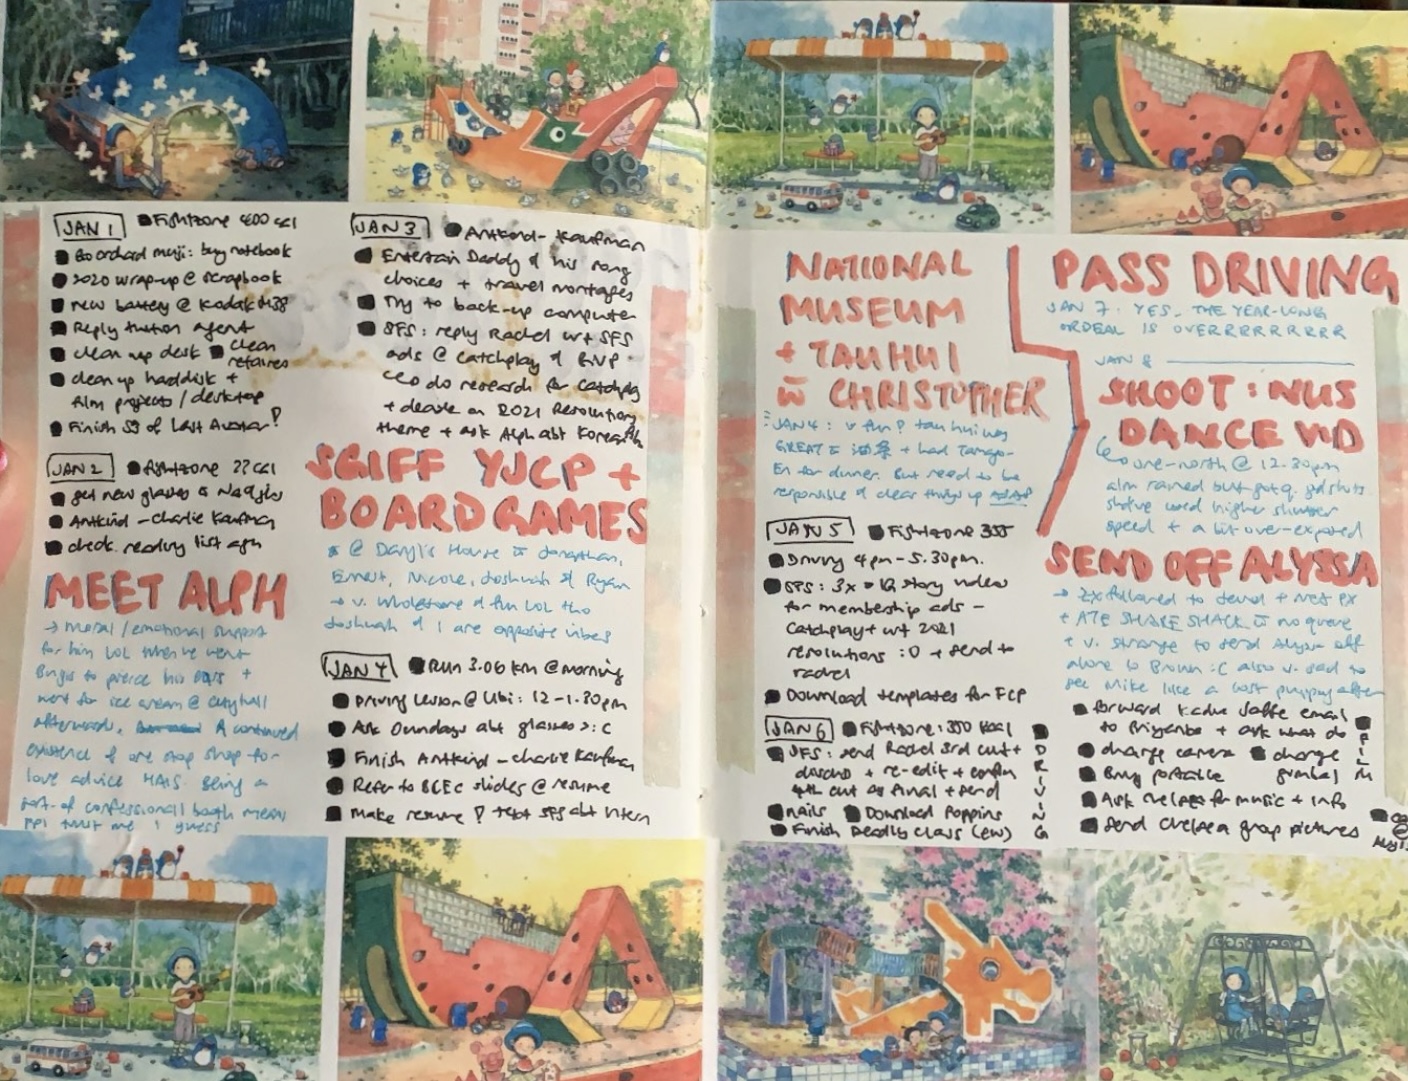 JAN 1 Fightzone 400 cal
Go orchard muji: buy notebook
2020 wrap-up @ scrapbook
new battery @ Kodak M38
Reply tuition agent
clean up desk clean retainers
clean up harddisk +
film projects / desktop
Finish S3 of Last Avatar!
JAN 2 Fightzone ?? cal
get new glasses
Antkind - Charlie Kaufman
check reading list again
MEET ALPH
→ moral / emotional support
for him LOL when we went
Bugis to pierce his ears +
went for ice cream @ cityhall
afterwards, A continued
existence of one stop shop for
love advice HAHS. Being a
sort-of confessional booth means
ppl trust me i guess
JAN 3 Antkind - Kaufman
Entertain Daddy & his song
choices + travel montages
Try to back-up computer
SFS: reply Rachel wrt SFS
ads @ Catchplay & RSVP
do research for Catchplay
+ decide on 2021 Resolution
theme + ask Alph abt Korean
SGIFF YJCP +
BOARDGAMES
@ Daryl's House w Jonathan,
Ernest, Nicole, Joshuah & Ryan
→ v. wholesome & fun LOL tho
Joshuah & I are opposite vibes
JAN 4 Run 3.06 km @ morning
Driving Lesson @ Ubi: 12-1.30pm
Ask Owndays abt glasses >:C
Finish Antkind - Charlie Kaufman
Refer to BCEC slides @ resume
Make resume ! text SFS abt intern
NATIONAL
MUSEUM
+ TAU HUI
w CHRISTOPHER
JAN 4: v fun! tau hui was
GREAT & 油条 + had Tamago-
En for dinner. But need to be
responsible & clear things up ASAP
JAN 5 Fightzone 355
Driving 4pm-5.30pm.
SFS: 3x IG story video
for membership ads -
Catchplay + wrt 2021
resolutions :D + send to
rachel
Download templates for FCP
JAN 6 Fightzone: 350 kcal
SFS: send Rachel 3rd cut +
+ re-edit + confirm
4th cut as final + send
nails Download Poppins
Finish Deadly Class (ew)
DRIVING
PASS DRIVING
JAN 7: YES, THE YEAR-LONG
ORDEAL IS OVERRRRRRRRRR
JAN 8
SHOOT: NUS
DANCE VID
one-north @ 12.30pm
alm rained but got q. gd shots
should used higher shutter
speed + a bit over-exposed
SEND OFF ALYSSA
→
+ ATE SHAKE SHACK w no queue
+ v. strange to send Alyssa off
alone to Brown :C also v. sad to
see Mike like a lost puppy after
forward Kadir Jaffe email
to Priyanka + ask what do
charge camera charge gimbal
Buy portable
Ask Chelsea for music + info
Send Chelsea group pictures
FILM